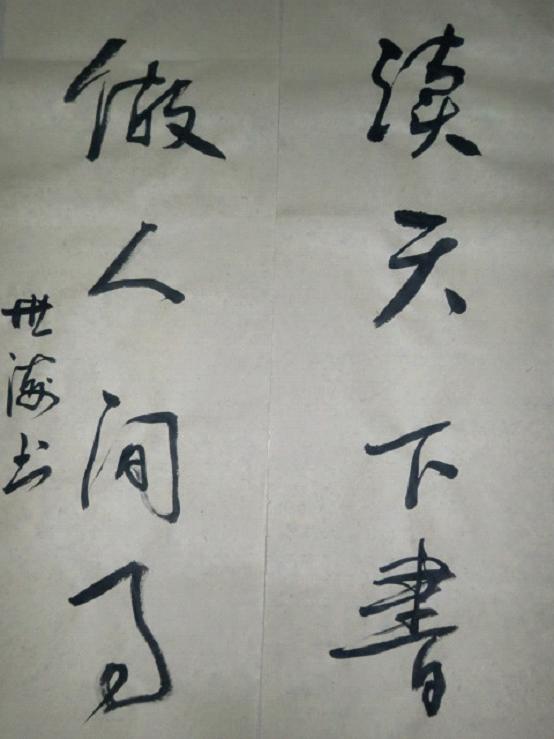 读天下書
做人间事
世海书